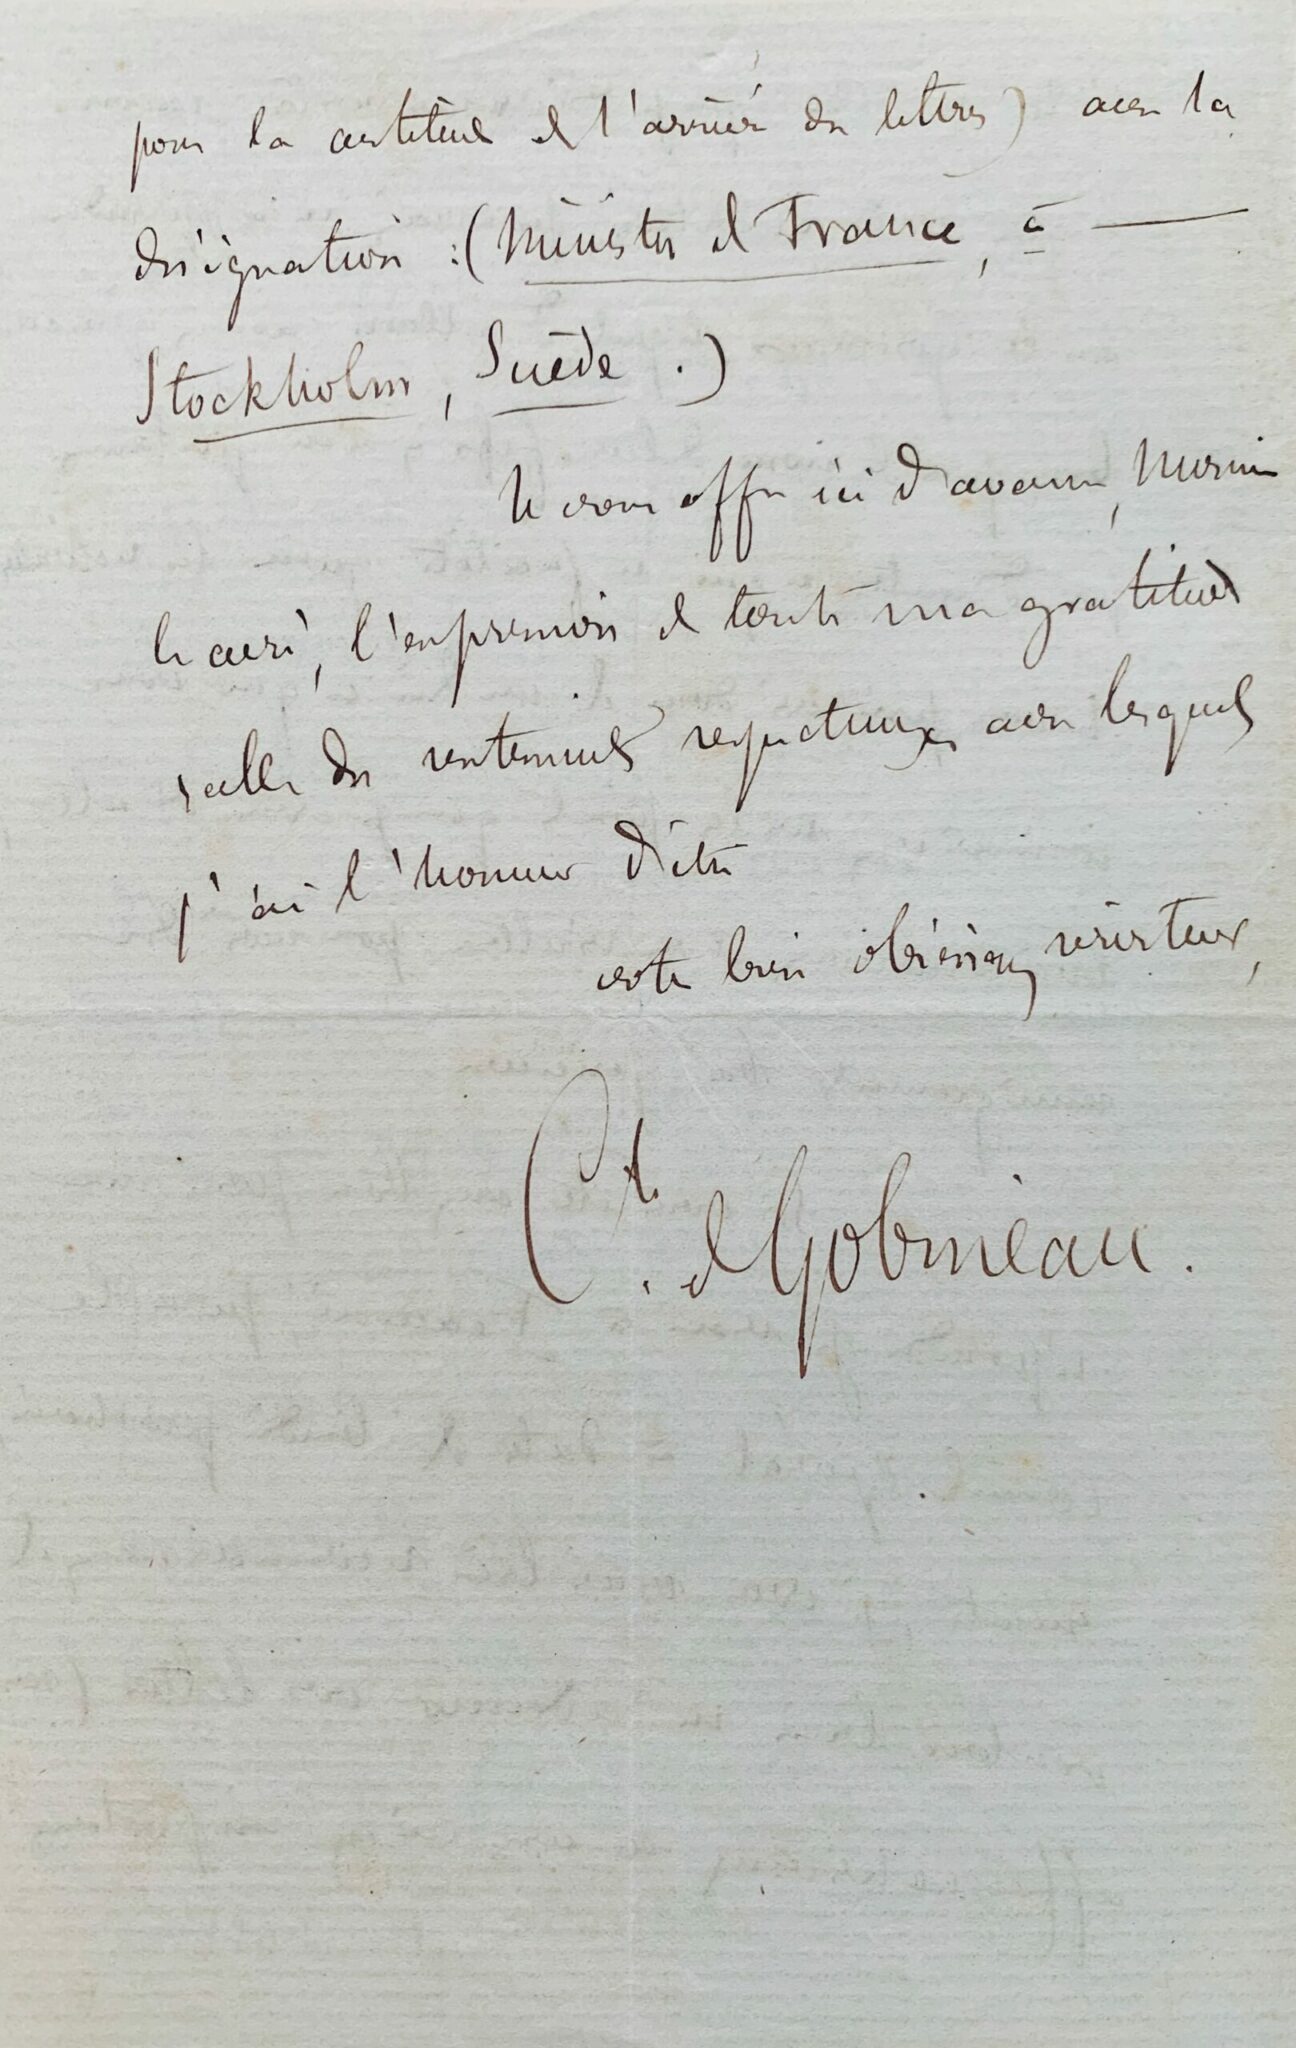 pour la certitude de l'arrivée des lettres) avec la
désignation : (Ministre de France, à —
Stockholm, Suède.)
Je vous offre ici d'avance, Monsieur
le curé, l'expression de toute ma gratitude
celle des sentiments respectueux avec lesquels
j'ai l'honneur d'être
votre bien obéissant serviteur,
Cte. de Gobineau.